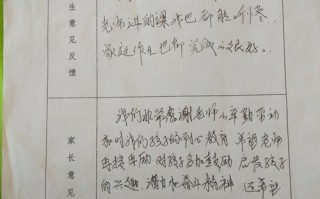 生意见反馈
老师讲的课我也都能听懂
家庭作业也都完成的很好。
家长意见
我们非常感谢老师的辛勤劳动
和对我们孩子的 教育 希望老师
再接再励 对孩子多加鼓励 启发孩子
的兴趣、潜力和奋斗精神 还希望